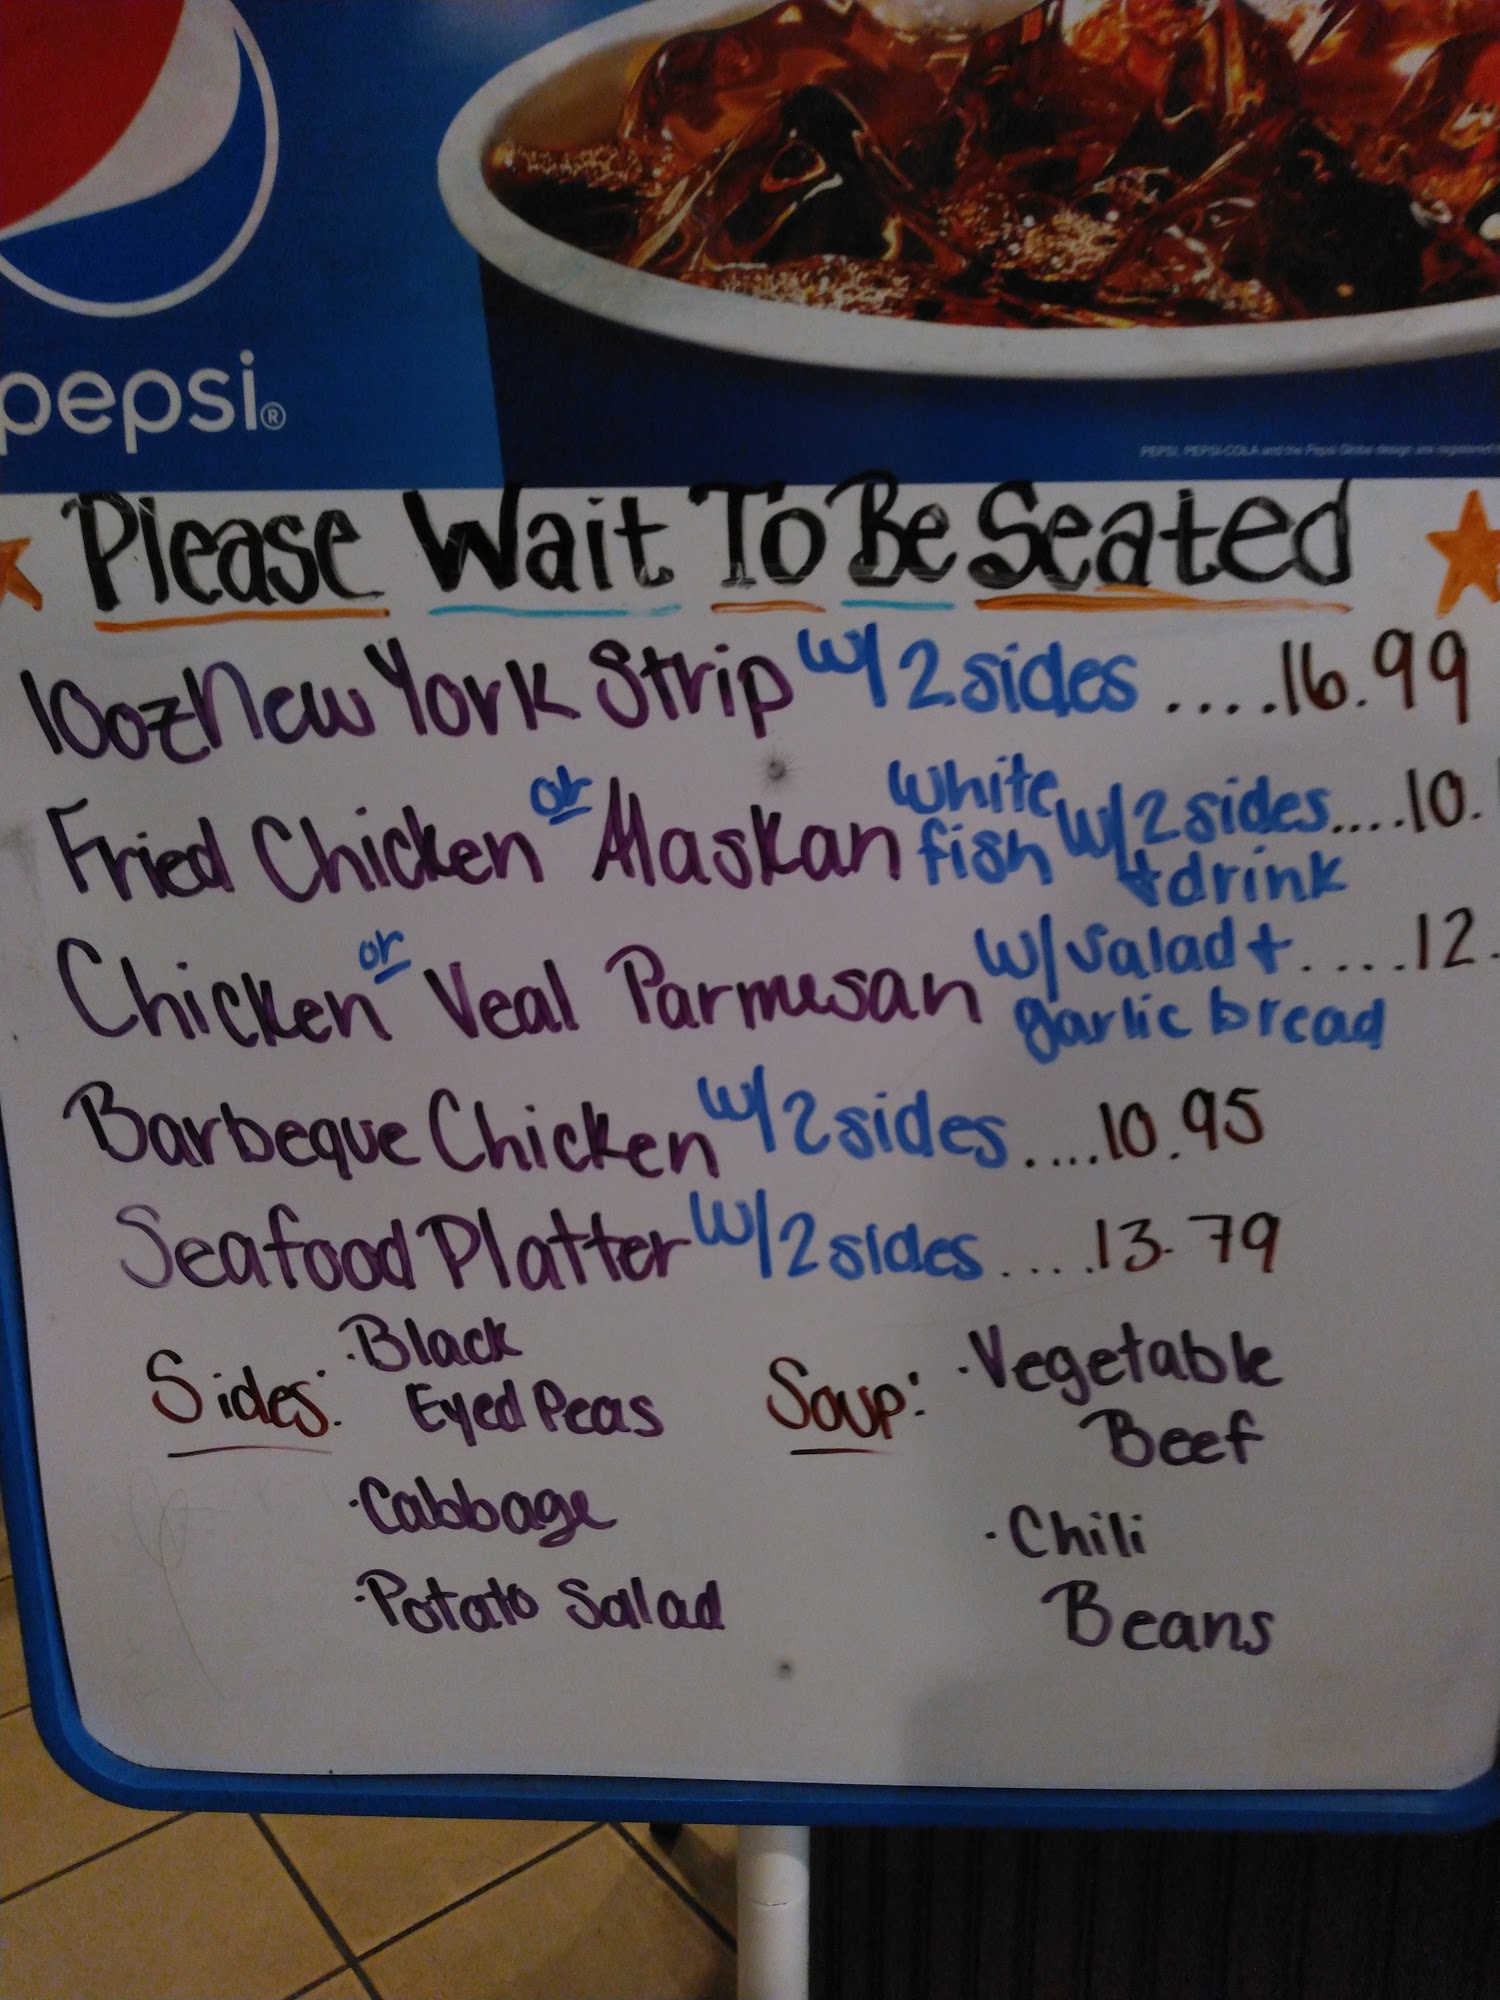 pepsi®
PEPSI, PEPSI-COLA and the Pepsi Globe design are registered
Please Wait To Be Seated
10oz New York Strip w/ 2 sides ....16.99
Fried Chicken or Alaskan white fish w/ 2 sides....10.
+ drink
Chicken or Veal Parmesan w/ salad + ....12.
garlic bread
Barbeque Chicken w/ 2 sides ....10.95
Seafood Platter w/ 2 sides ....13.79
Sides: · Black Eyed Peas
· Cabbage
· Potato Salad
Soup: · Vegetable Beef
· Chili Beans